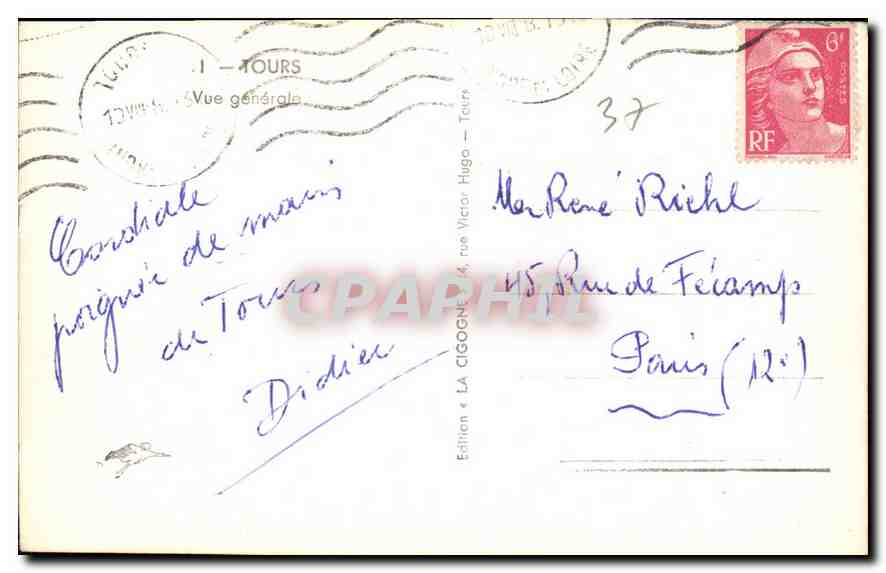 I — TOURS
Vue générale
TOURS
INDRE-ET-LOIRE
6F
POSTES
RF
37
Cordiale
poignée de main
de Tours
Didier
Edition « LA CIGOGNE 4, rue Victor Hugo — Tours
Mr René Riehl
45, Rue de Fécamp
Paris (12e)
CPAPHIL